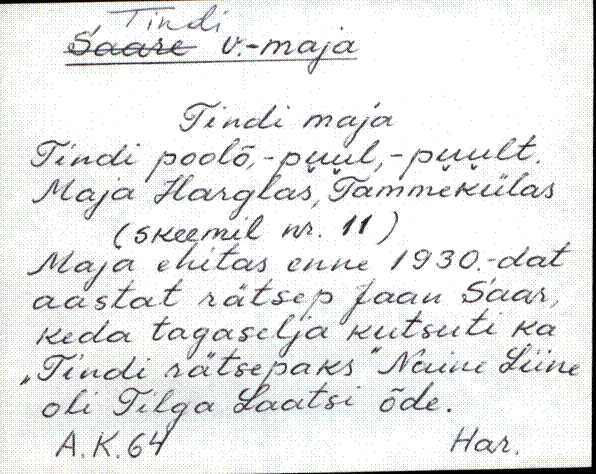 Tindi
Saare v.-maja
Tindi maja
Tindi poolõ,-puul,-puult.
Maja Harglaš, Tammekülas
(skeemil nr. 11)
Maja ehitas enne 1930.-dat
aastat rätsep Jaan Saar,
keda tagaselja kutsuti ka
„Tindi rätsepaks" Naine Liine
oli Tilga Laatsi õde.
A.K.64 Har.